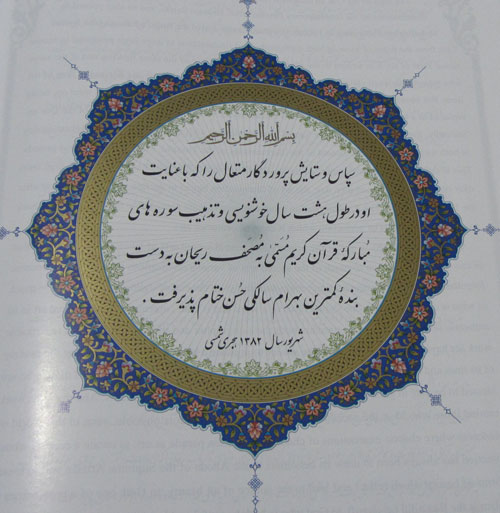 بسم الله الرحمن الرحیم
سپاس و ستایش پروردگار متعال را که با عنایت
او در طول هشت سال خوشنویسی و تذهیب سوره های
مبارکهٔ قرآن کریم مُسمّیٰ به مُصحف ریحان به دست
بندهٔ کمترین بهرام سالکی حُسن ختام پذیرفت .
شهریور سال ۱۳۸۲ هجری شمسی